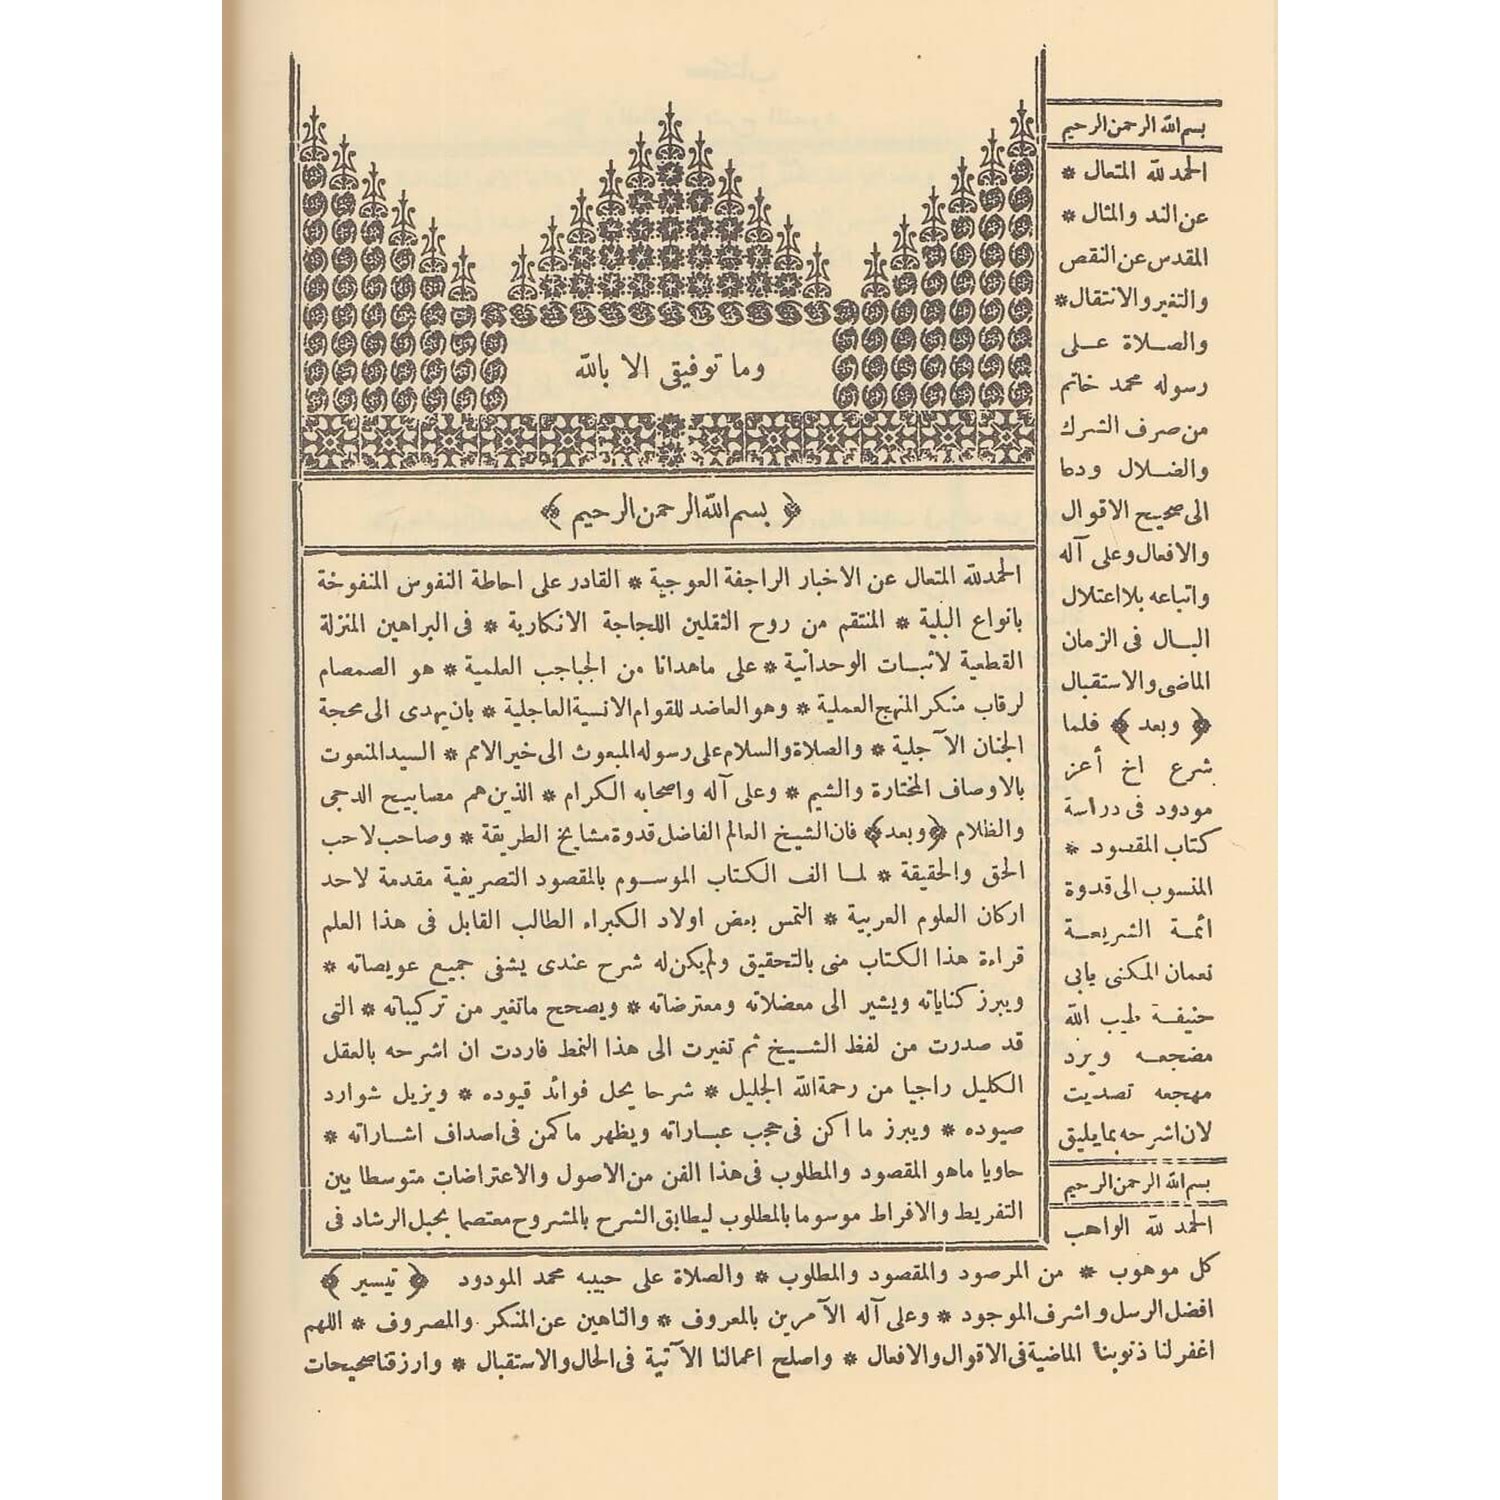 وما توفيقى الا بالله
﴿ بسم الله الرحمن الرحيم ﴾
الحمدلله المتعال عن الاخبار الراجفة العوجية * القادر على احاطة النفوس المنفوخة
بانواع البلية * المنتقم من روح الثقلين اللجاجة الانكارية * فى البراهين المنزلة
القطعية لاثبات الوحدانية * على ماهدانا من الجباجب العلمية * هو الصمصام
لرقاب منكر المنهج العملية * وهو العاضد للقوام الانسية العاجلية * بان يهدى الى محجة
الجنان الآجلية * والصلاة والسلام على رسوله المبعوث الى خير الامم * السيد المنعوت
بالاوصاف المختارة والشيم * وعلى آله واصحابه الكرام * الذين هم مصابيح الدجى
والظلام ﴿وبعد﴾ فان الشيخ العالم الفاضل قدوة مشايخ الطريقة * وصاحب لاحب
الحق والحقيقة * لما الف الكتاب الموسوم بالمقصود التصريفية مقدمة لاحد
اركان العلوم العربية * التمس بعض اولاد الكبراء الطالب القابل فى هذا العلم
قراءة هذا الكتاب منى بالتحقيق ولم يكن له شرح عندى يشفى جميع عويصاته *
ويبرز كناياته ويشير الى معضلاته ومعترضاته * ويصحح ماتغير من تركيباته * التى
قد صدرت من لفظ الشيخ ثم تغيرت الى هذا النمط فاردت ان اشرحه بالعقل
الكليل راجيا من رحمة الله الجليل * شرحا يحل فوائد قيوده * ويزيل شوارد
صيوده * ويبرز ما اكن فى حجب عباراته ويظهر ماكمن فى اصداف اشاراته *
حاويا ماهو المقصود والمطلوب فى هذا الفن من الاصول والاعتراضات متوسطا بين
التفريط والافراط موسوما بالمطلوب ليطابق الشرح بالمشروح معتصما بحبل الرشاد فى
بسم الله الرحمن الرحيم
الحمد لله المتعال *
عن الند والمثال *
المقدس عن النقص
والتغير والانتقال *
والصلاة على
رسوله محمد خاتم
من صرف الشرك
والضلال ودعا
الى صحيح الاقوال
والافعال وعلى آله
واتباعه بلا اعتلال
البال فى الزمان
الماضى والاستقبال
﴿ وبعد ﴾ فلما
شرع اخ أعز
مودود فى دراسة
كتاب المقصود *
المنسوب الى قدوة
ائمة الشريعة
نعمان المكنى بابى
حنيفة طيب الله
مضجعه وبرد
مهجعه تصديت
لان اشرحه بما يليق
بسم الله الرحمن الرحيم
الحمد لله الواهب
كل موهوب * من المرصود والمقصود والمطلوب * والصلاة على حبيبه محمد المودود ﴿ تيسير ﴾
افضل الرسل واشرف الموجود * وعلى آله الآمرين بالمعروف * والناهين عن المنكر والمصروف * اللهم
اغفر لنا ذنوبنا الماضية فى الاقوال والافعال * واصلح اعمالنا الآتية فى الحال والاستقبال * وارزقنا صحيحات